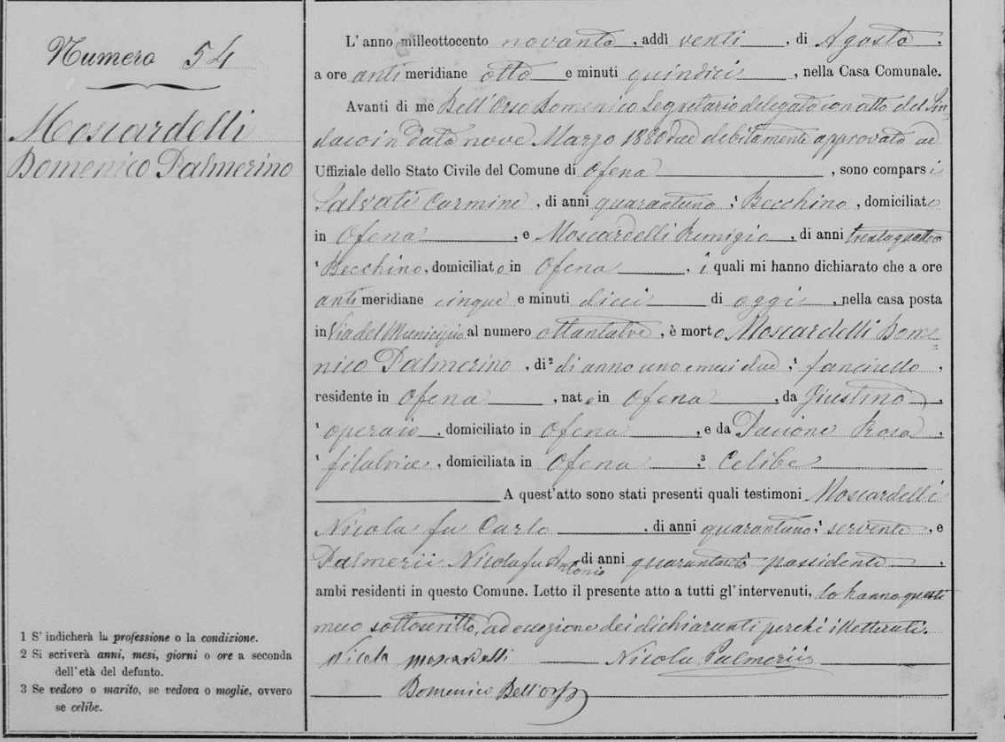 Numero 54
Moscardelli
Domenico Palmerino
1 S' indicherà la professione o la condizione.
2 Si scriverà anni, mesi, giorni o ore a seconda
dell'età del defunto.
3 Se vedovo o marito, se vedova o moglie, ovvero
se celibe.
L' anno milleottocento novanta, addì venti, di Agosto,
a ore antimeridiane otto e minuti quindici, nella Casa Comunale.
Avanti di me Dell'Orso Domenico Segretario delegato con atto del Sin-
daco in data nove Marzo 1880 debitamente approvato ad
Uffiziale dello Stato Civile del Comune di Ofena, sono comparsi
Salvati Carmine, di anni quarantuno, ¹ Becchino, domiciliato
in Ofena, e Moscardelli Remigio, di anni trentaquattro
¹ Becchino, domiciliato in Ofena, i quali mi hanno dichiarato che a ore
antimeridiane cinque e minuti dieci di oggi, nella casa posta
in Via del Municipio al numero, è morto Moscardelli Dome-
nico Palmerino, di ² di anno uno e mesi due, ¹ fanciullo,
residente in Ofena, nato in Ofena, da Giustino,
¹ operaio, domiciliato in Ofena, e da Rosa,
¹ filatrice, domiciliata in Ofena, ³ Celibe
A quest'atto sono stati presenti quali testimoni Moscardelli
Nicola fu Carlo, di anni quarantuno, ¹ servente, e
Palmerii Nicola fu Antonio di anni ¹ possidente,
ambi residenti in questo Comune. Letto il presente atto a tutti gl'intervenuti, lo hanno questi
meco sottoscritto, ad eccezione dei dichiaranti perché illetterati.
Nicola Moscardelli Nicola Palmerii
Domenico Dell'Orso